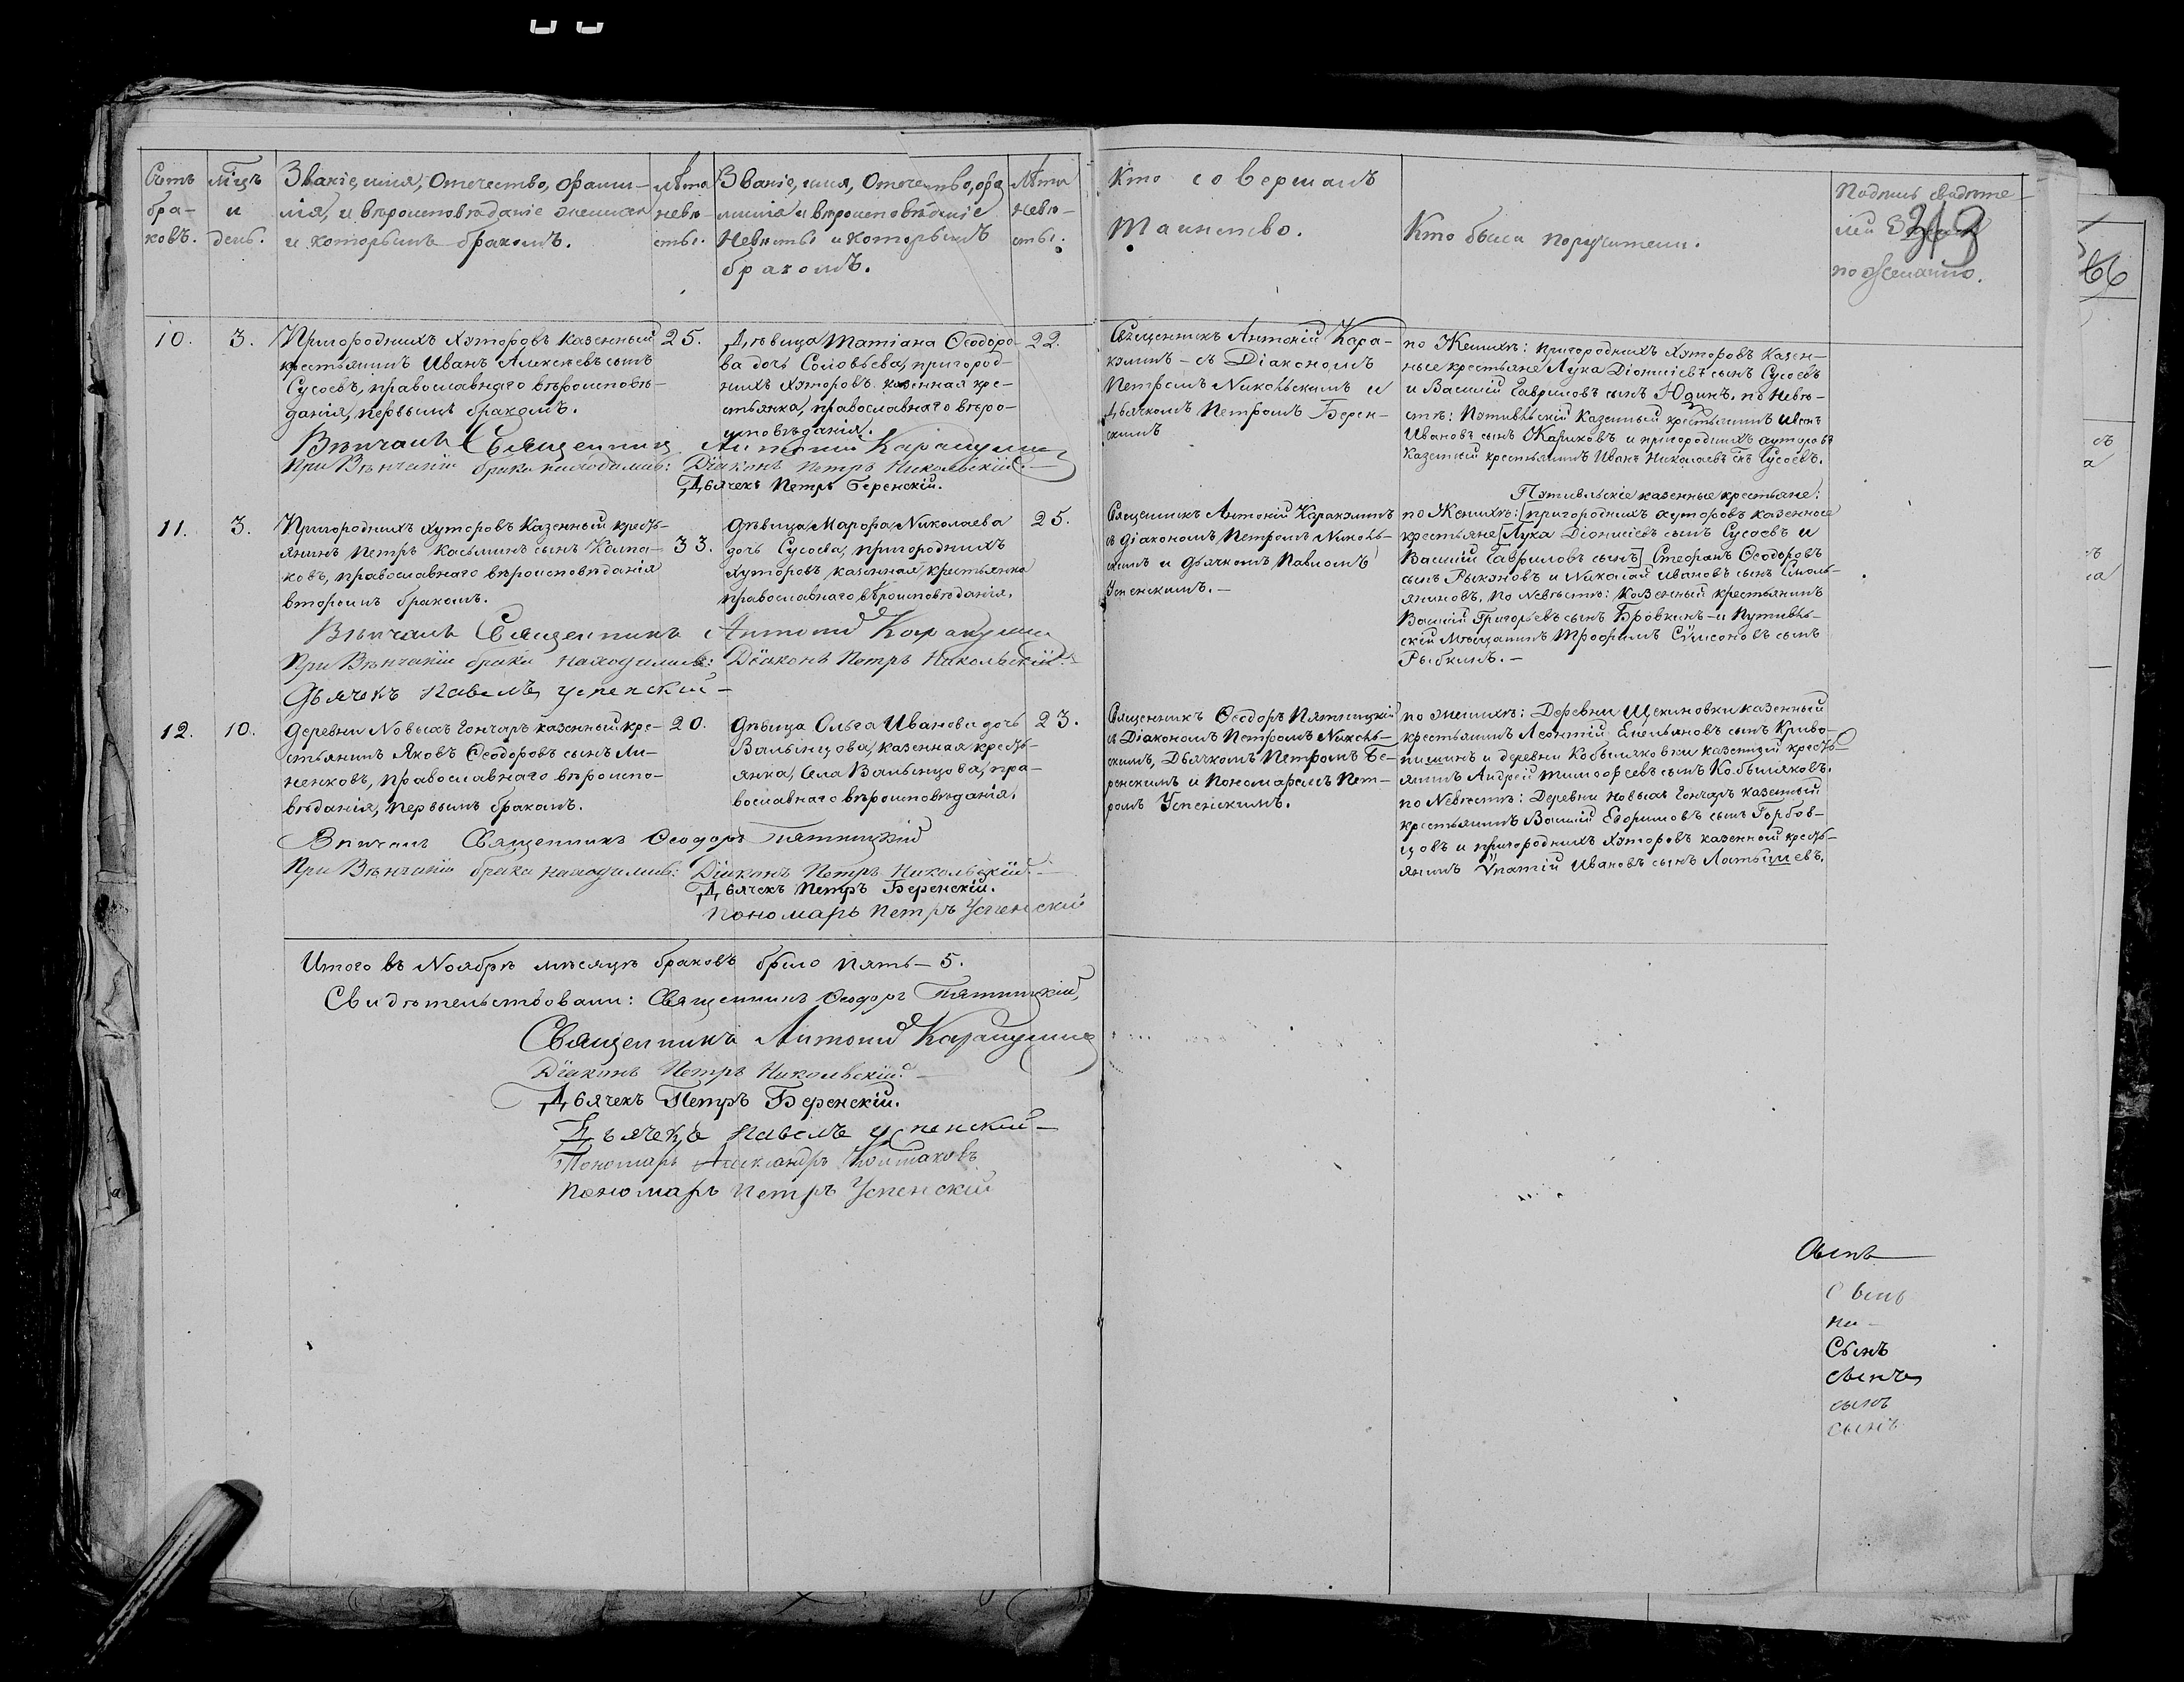 Счетъ бра- ковъ.
Мѣцъ и день.
Званіе, имя, Отечество, фами-
лія, и вѣроисповѣданіе жениха
и которымъ бракомъ.
лѣта невѣ- сты.
Званіе, имя, Отечество, фа
милія и вѣроисповѣданіе
Невѣсты и которымъ
бракомъ.
Лѣта Невѣ- сты.
Кто совершалъ
Таинство.
Кто были поручители.
Подпись свидѣте-
лей
по желанію.
10.
3.
Пригородныхъ Хуторовъ казенный
крестьянинъ Иванъ Алексѣевъ сынъ
Сусоевъ, православнаго вѣроисповѣ-
данія, первымъ бракомъ.
25.
Дѣвица Татіана Ѳеодоро-
ва дочь Соловьева, пригород-
ныхъ хуторовъ казенная кре-
стьянка, православнаго вѣро-
исповѣданія.
22.
Священникъ Антоній Кара-
кулинъ - съ Діакономъ
Петромъ Никольскимъ и
Дьячкомъ Петромъ Берен-
скимъ
по Женихѣ: пригородныхъ Хуторовъ Казен-
ные крестьяне Лука Діонисіевъ сынъ Сусоевъ
и Василій Гавриловъ сынъ Юдинъ. по Невѣ-
стѣ: Путивльскій Казенный крестьянинъ Иванъ
Ивановъ сынъ Жариковъ и пригородныхъ хуторовъ
Казенный крестьянинъ Иванъ Николаевъ Сусоевъ.
Вѣнчалъ Священникъ Антоній Каракулинъ
При Вѣнчаніи брака находились: Діаконъ Петръ Никольскій.
Дьячекъ Петръ Беренскій.
11.
3.
Пригородныхъ хуторовъ Казенный кресть-
янинъ Петръ Касьминъ сынъ Колпа-
ковъ, православнаго вѣроисповѣданія
вторымъ бракомъ.
33.
Дѣвица Марфа Николаева
дочь Сусоева, Пригородныхъ
Хуторовъ казенная крестьянка
православнаго вѣроисповѣданія.
25.
Священникъ Антоній Каракулинъ
съ діакономъ Петромъ Николь-
скимъ и дьячкомъ Павломъ
Успенскимъ. -
Путивльскіе казенные крестьяне:
по Женихѣ: [пригородныхъ хуторовъ казенные
крестьяне] [Лука Діонисіевъ сынъ Сусоевъ и
Василій Гавриловъ сынъ] Стефанъ Ѳеодоровъ
сынъ Рыкуновъ и Николай Ивановъ сынъ Смоль-
яниновъ. По Невѣстѣ: Казенный крестьянинъ
Василій Григорьевъ сынъ Бровкинъ - и Путивль-
скій Мѣщанинъ Трофимъ Сѵмсоновъ сынъ
Рыбкинъ. -
Вѣнчалъ Священникъ Антоній Каракулинъ
При Вѣнчаніи брака находились: Діаконъ Петръ Никольскій.
Дьячекъ Павелъ Успенскій -
12.
10.
Деревни Новыхъ Гончаръ казенный кре-
стьянинъ Яковъ Ѳеодоровъ сынъ Ли-
ненковъ, православнаго вѣроиспо-
вѣданія, первымъ бракомъ.
20.
Дѣвица Ольга Иванова дочь
Валынцова, казенная кресть-
янка, Села Валынцова, пра-
вославнаго вѣроисповѣданія.
23.
Священникъ Ѳеодоръ Пятницкій
съ Діакономъ Петромъ Николь-
скимъ, Дьячкомъ Петромъ Бе-
ренскимъ и Пономаремъ Пет-
ромъ Успенскимъ.
по женихѣ: Деревни Щекиновки казенный
крестьянинъ Леонтій Емельяновъ сынъ Криво-
пишинъ и деревни Кобыляковки казенный кресть-
янинъ Андрей Тимоѳеевъ сынъ Кобыляковъ.
по Невѣстѣ: Деревни Новыхъ Гончаръ казенный
крестьянинъ Василій Ефримовъ сынъ Горбов-
цовъ и пригородныхъ Хуторовъ казенной кресть-
янинъ Ѵпатій Ивановъ сынъ Латышевъ.
Вѣнчалъ Священникъ Ѳеодоръ Пятницкій
При Вѣнчаніи брака находились: Діаконъ Петръ Никольскій. -
Дьячекъ Петръ Беренскій.
Пономарь Петръ Успенскій
Итого въ Ноябрѣ мѣсяцѣ браковъ было пять - 5.
Свидѣтельствовали: Священникъ Ѳеодоръ Пятницкій,
Священникъ Антоній Каракулинъ
Діаконъ Петръ Никольскій. -
Дьячекъ Петръ Беренскій.
Дьячекъ Павелъ Успенскій -
Пономарь Александръ
Пономарь Петръ Успенскій
Сынъ
сынъ
сынъ
сынъ